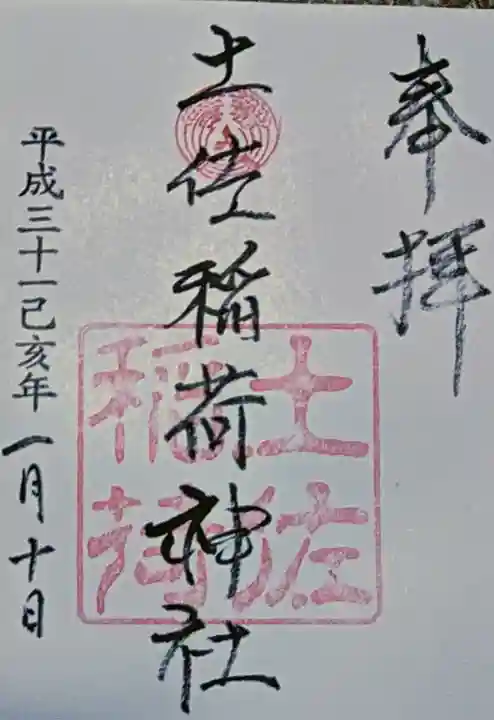 奉拝
土佐稲荷神社
土佐
稲荷
平成三十一己亥年一月十日